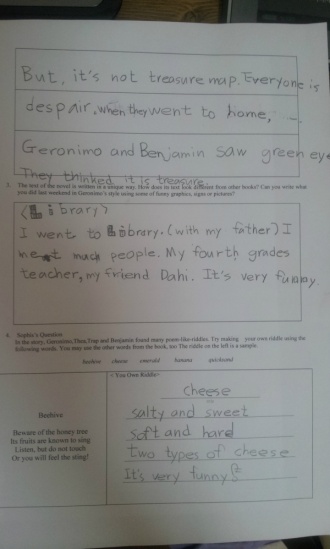 But, it's not treasure map. Everyone is
despair. when they went to home, ......
Geronimo and Benjamin saw green eye
They thinked it is treasure.
3. The text of the novel is written in a unique way. How does its text look different from other books? Can you write what
you did last weekend in Geronimo's style using some of funny graphics, signs or pictures?
<Library>
I went to Library. (with my father) I
meet much people. My fourth grades
teacher, my friend Dahi. It's very funny.
4. Sophie's Question
In the story, Geronimo, Thea, Trap and Benjamin found many poem-like-riddles. Try making your own riddle using the
following words. You may use the other words from the book, too The riddle on the left is a sample.
beehive cheese emerald banana quicksand
Beehive
Beware of the honey tree
Its fruits are known to sing
Listen, but do not touch
Or you will feel the sting!
< You Own Riddle>
cheese
salty and sweet
soft and hard
two types of cheese
It's very funny!